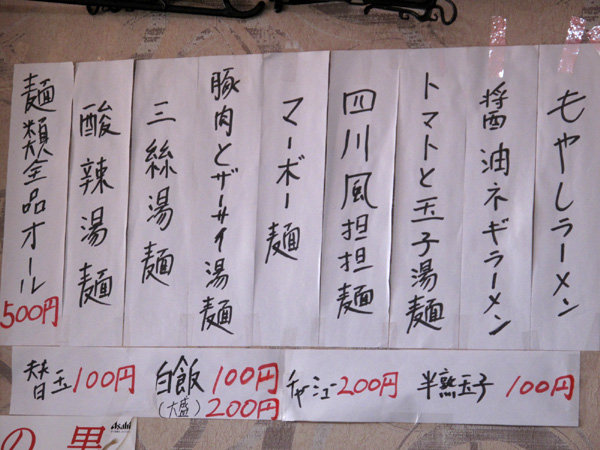 もやしラーメン
醤油ネギラーメン
トマトと玉子湯麺
四川風担担麺
マーボー麺
豚肉とザーサイ湯麺
三絲湯麺
酸辣湯麺
麺類全品オール
500円
替玉100円
白飯100円
(大盛)200円
チャーシュー200円
半熟玉子100円
の黒
Asahi